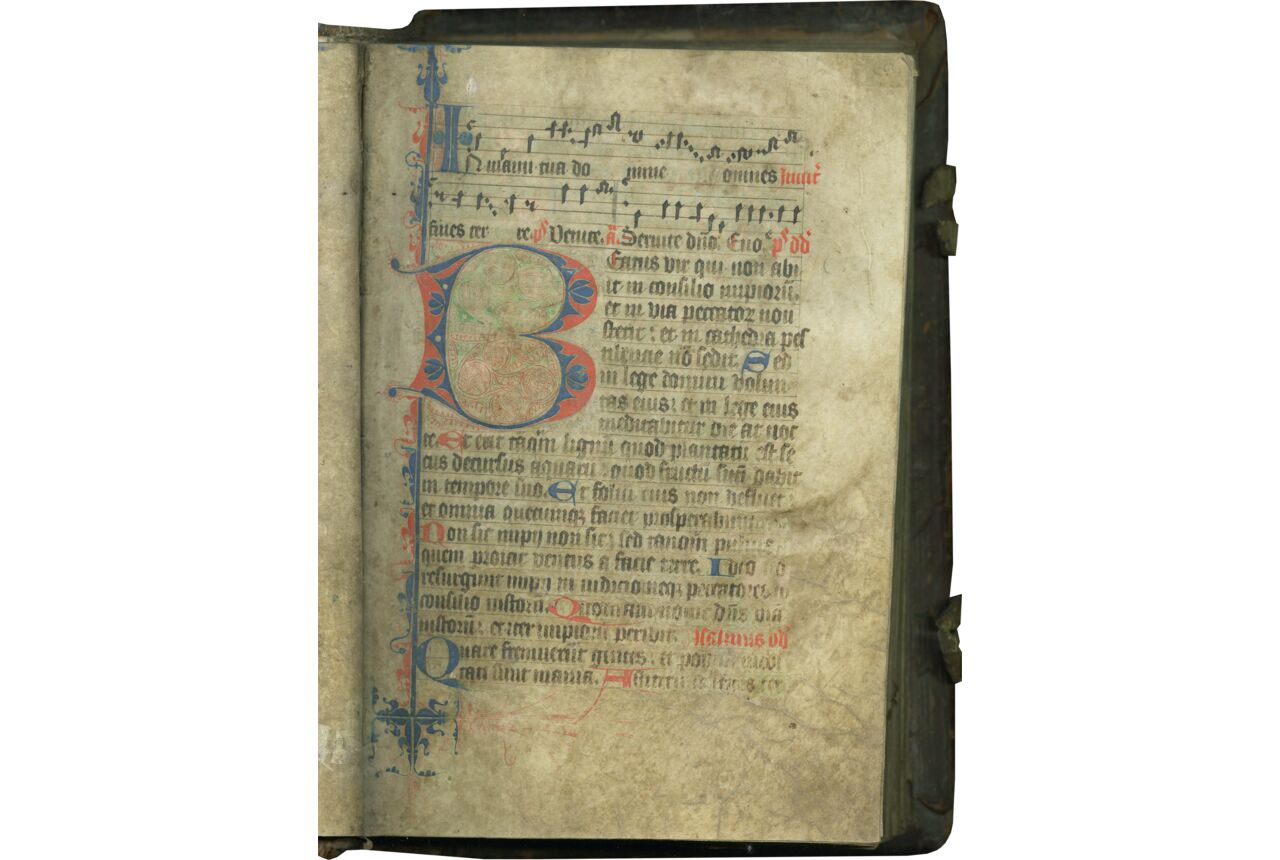 IN manu tua do mine omnes
fines ter re. ps Venite. a. Servite dño. Evo. ps dd
BEatus vir qui non abi
it in consilio impiorū.
et in via peccator non
stetit: et in cathedra pes
tilencie nō sedit. Sed
in lege domini volun
tas eius: et in lege eius
meditabitur die ac noc
te. Et erit tāqm lignū quod plantatū est se
cus decursus aquarū: quod fructū suū dabit
in tempore suo. Et foliū eius non defluet:
et omnia quecumqꝫ faciet prosperabuntur
Non sic impij non sic: sed tanqm pulvis
quem proicit ventus a facie terre. Ideo no
resurgunt impij in iudicio neqꝫ peccatores in
consilio iustorū. Quoniam novit dñs viā
iustorū: et iter impiorū peribit. Psalmus dd
Quare fremuerūt gentes: et populi medi
tati sunt inania. Astiterū reges ter